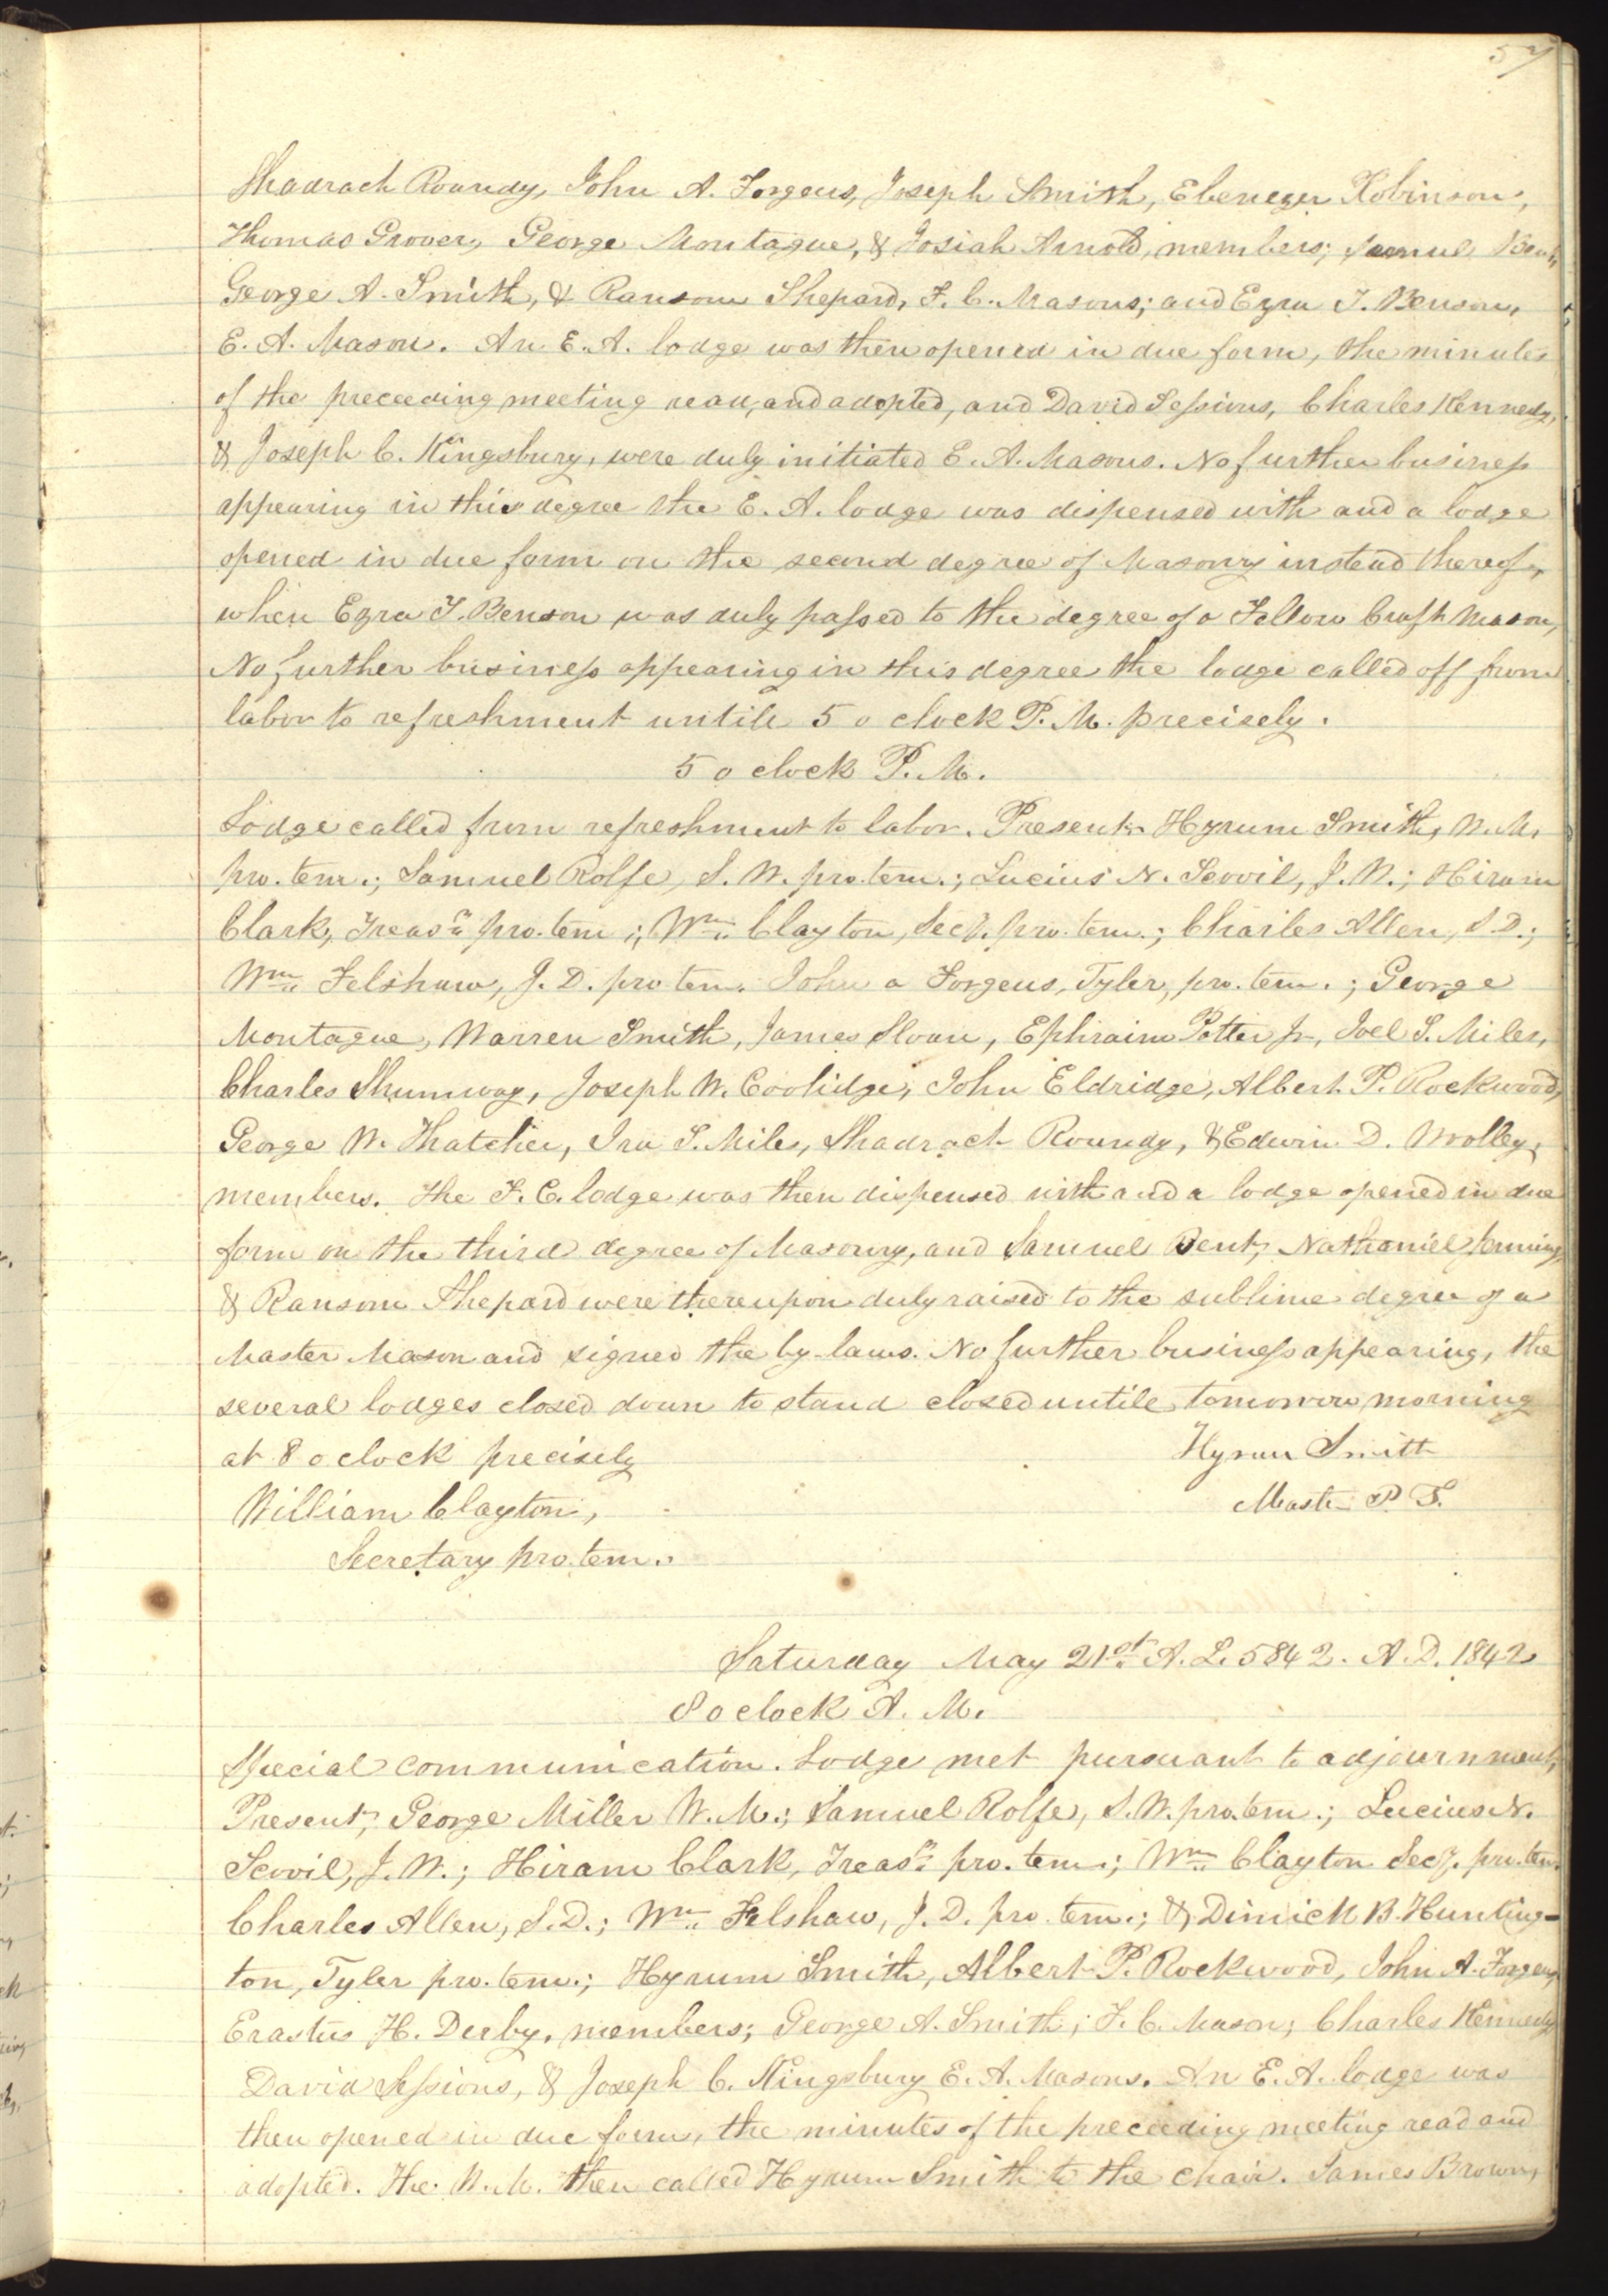 57
Shadrach Roundy, John A. Forgeus, Joseph Smith, Ebenezer Robinson,
Thomas Grover, George Montague, & Josiah Arnold, members; Samuel Bent,
George A. Smith, & Ransom Shepard, F. C. Masons; and Ezra T. Benson,
E. A. Mason. An E. A. lodge was then opened in due form, the minutes
of the preceeding meeting read, and adopted, and David Sessions, Charles Kennedy,
& Joseph C. Kingsbury, were duly initiated E. A. Masons. No further business
appearing in this degree the E. A. lodge was dispensed with and a lodge
opened in due form on the second degree of Masonry instead thereof,
when Ezra T. Benson was duly passed to the degree of a Fellow Craft Mason,
No further business appearing in this degree the lodge called off from
labor to refreshment untill 5 o clock P. M. precisely.
5 o clock P. M.
Lodge called from refreshment to labor. Present Hyrum Smith, W. M.
pro. tem.; Samuel Rolfe, S. W. pro. tem.; Lucius N. Scovil, J. W.; Hiram
Clark, Treasr. pro. tem.; Wm. Clayton, Secy. pro. tem.; Charles Allen, S. D.;
Wm. Felshaw, J. D. pro tem. John a Forgeus, Tyler, pro. tem.; George
Montague, Warren Smith, James Sloan, Ephraim Potter Jr, Joel S. Miles,
Charles Shumway, Joseph W. Coolidge, John Eldridge, Albert P. Rockwood,
George W. Thatcher, Ira S. Miles, Shadrach Roundy, & Edwin D. Wolley,
members. The F. C. lodge was then dispensed with and a lodge opened in due
form on the third degree of Masonry, and Samuel Bent, Nathaniel
& Ransom Shepard were thereupon duly raised to the sublime degree of a
Master Mason and signed the by-laws. No further business appearing, the
several lodges closed down to stand closed untile tomorrow morning
at 8 o clock precisely
Hyrum Smith
William Clayton,
Master P. T.
Secretary pro. tem.
Saturday May 21st. A. L. 5842. A. D. 1842
8 o clock A. M.
Special communication. Lodge met pursuant to adjournment,
Present, George Miller W. M.; Samuel Rolfe, S. W. pro. tem.; Lucius N.
Scovil, J. W.; Hiram Clark, Treasr. pro. tem.; Wm. Clayton Secy. pro. tem.
Charles Allen, S. D.; Wm. Felshaw, J. D. pro. tem.; & Dimick B. Hunting-
ton, Tyler pro. tem.; Hyrum Smith, Albert P. Rockwood, John A. Forgeus,
Erastus H. Derby, members; George A. Smith; F. C. Mason; Charles Kennedy
David Sessions, & Joseph C. Kingsbury E. A. Masons. An E. A. lodge was
then opened in due form, the minutes of the preceeding meeting read and
adopted. The W. M. then called Hyrum Smith to the chair. James Brown,